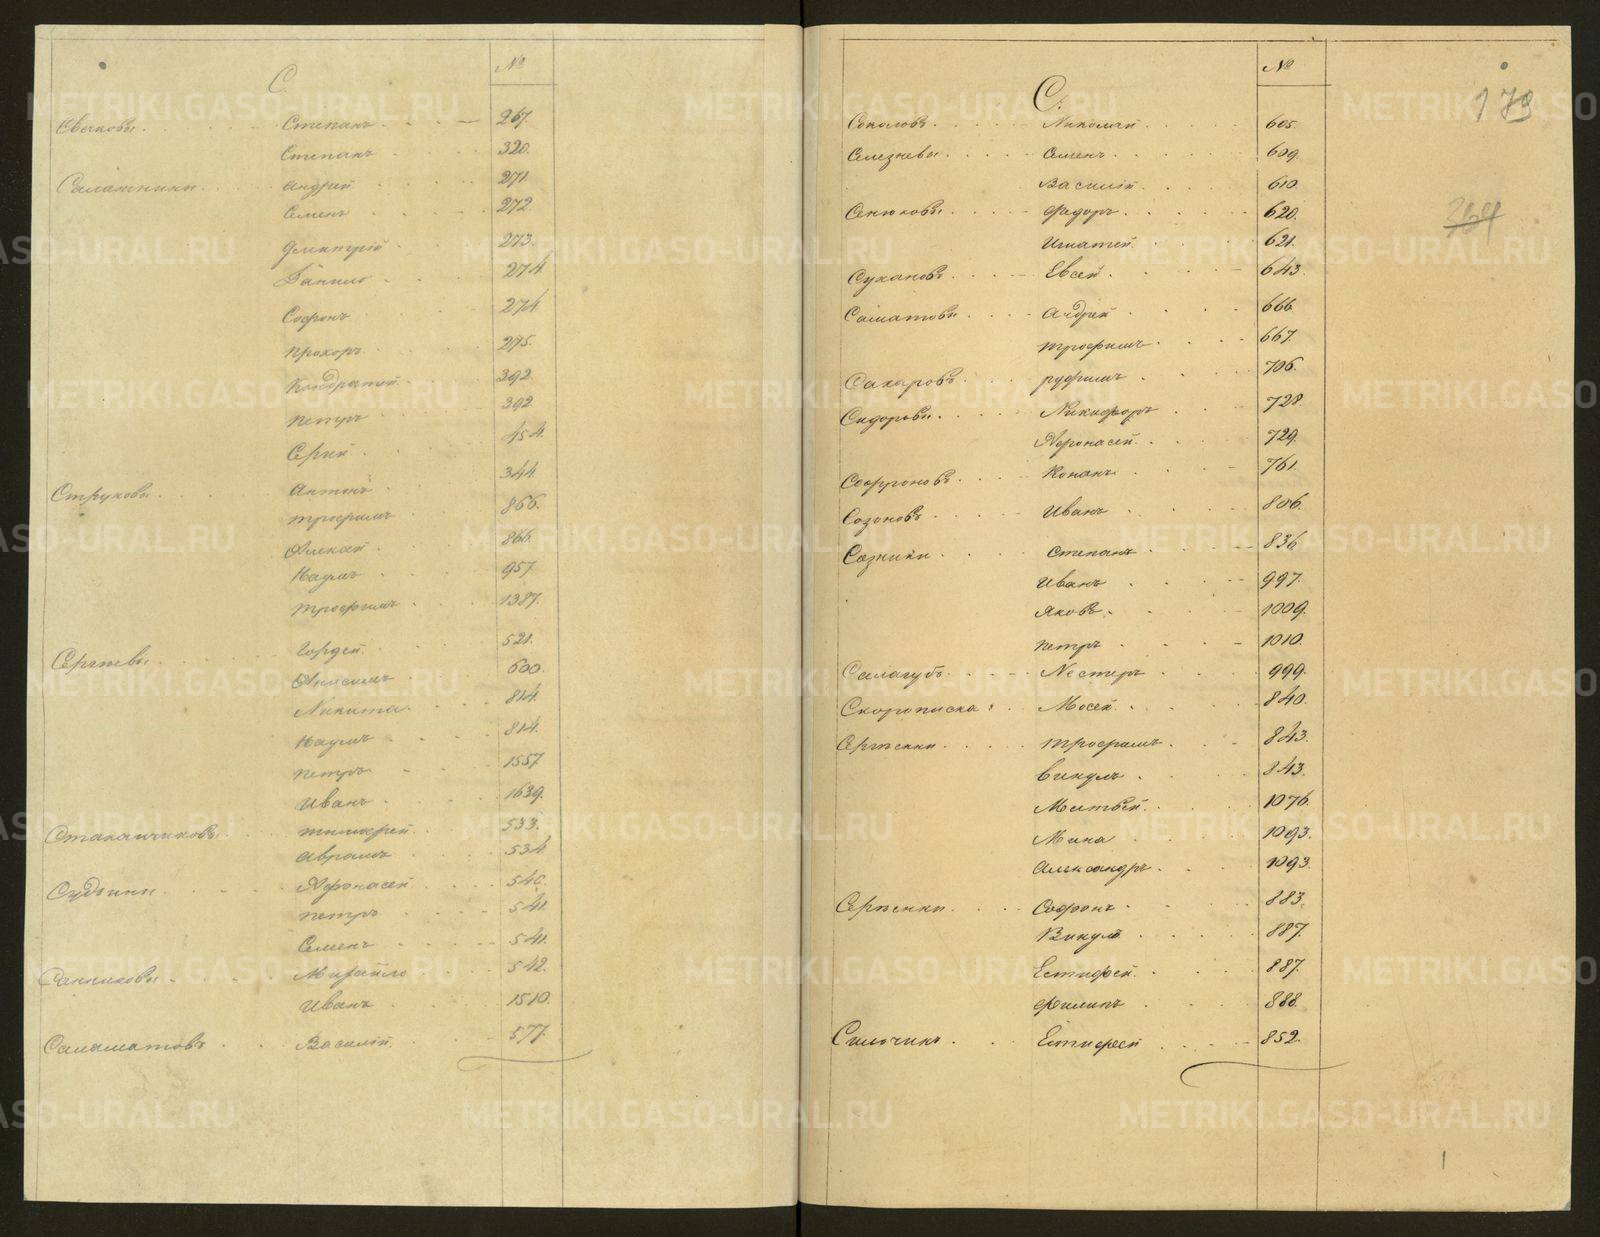 С
№
Свечковы Степанъ 267.
Степанъ 320.
Салатники Андрей 271.
Семенъ 272.
Дмитрій 273.
Данило 274.
Софронъ 274.
Прохоръ 275.
Кондратий 392.
Петръ 392.
Сергій 454.
Струковы Антонъ 344.
Трофимъ 866.
Алексей 866.
Наумъ 957.
Трофимъ 1387.
Сергѣевы Гордей 521.
Анисимъ 600.
Никита 814.
Наумъ 814.
Петръ 1557.
Иванъ 1639.
Стаканчиковъ Тимофей 533.
Аврамъ 534.
Судьины Афонасей 540.
Петръ 541.
Семенъ 541.
Санниковы Михайло 542.
Иванъ 1510.
Саламатовъ Василій 577.
С.
№
179
364
Соколовъ Николай 605.
Селезневы Семенъ 609.
Василій 610.
Сенюковы Федоръ 620.
Игнатей 621.
Сухановъ Евсей 643.
Саматовы Андрей 666.
Трофимъ 667.
Сахаровъ Руфимъ 706.
Сидоровы Никифоръ 728.
Афонасей 729.
Софроновъ Конанъ 761.
Созоновъ Иванъ 806.
Сазники Степанъ 836.
Иванъ 997.
Яковъ 1009.
Петръ 1010.
Салагубъ Нестеръ 999.
Скорописка Мосей 840.
Сергѣенки Трофимъ 843.
Викулъ 843.
Матвей 1076.
Мина 1093.
Александръ 1093.
Сергѣенки Софронъ 883.
Викулъ 887.
Естифей 887.
Филипъ 888.
Сильчикъ Естифей 852.
METRIKI.GASO-URAL.RU